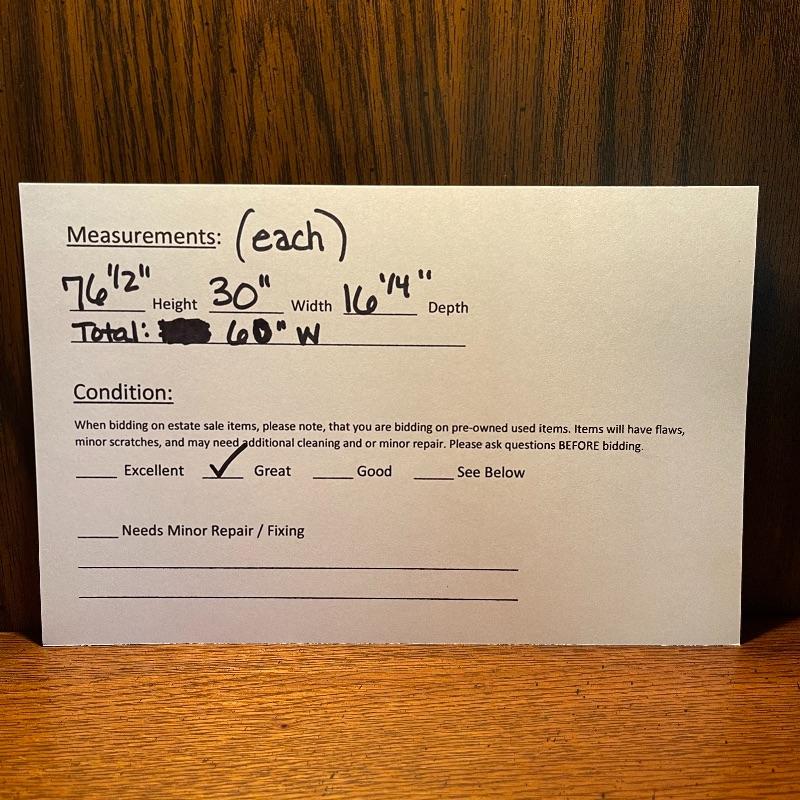 Measurements: (each)
76 1/2" Height 30" Width 16 1/4" Depth
Total: 60" W
Condition:
When bidding on estate sale items, please note, that you are bidding on pre-owned used items. Items will have flaws,
minor scratches, and may need additional cleaning and or minor repair. Please ask questions BEFORE bidding.
____ Excellent ✓ Great ____ Good ____ See Below
____ Needs Minor Repair / Fixing